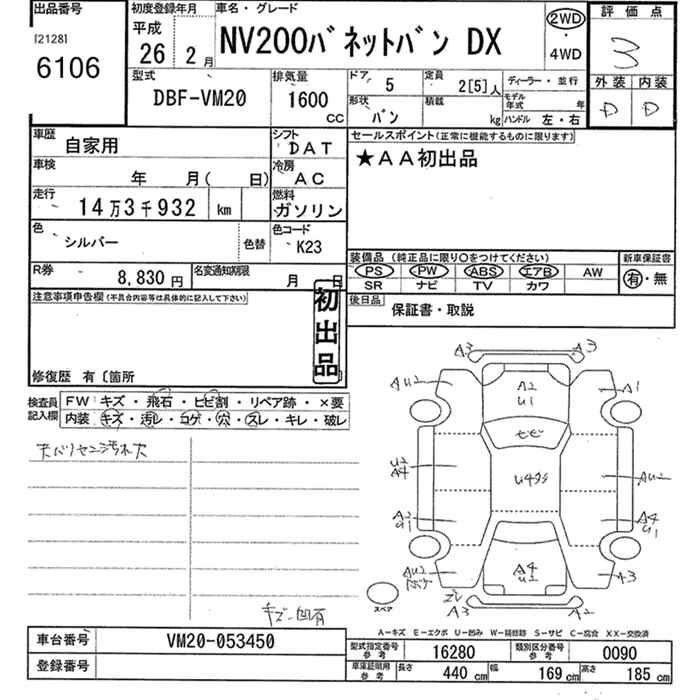 出品番号
[2128]
6106
初度登録年月
平成
26年 2月
車名・グレード
NV200バネットバン DX
2WD
・
4WD
評価点
3
外装 内装
D D
型式
DBF-VM20
排気量
1600
CC
ドア
5
定員
2[5]人
ディーラー・並行
形状
バン
積載
kg
モデル年式 年
ハンドル 左・右
車歴
自家用
シフト
DAT
車検
年 月( 日)
冷房
AC
走行
14万3千932 km
燃料
ガソリン
色
シルバー
色替
色コード
K23
R券
8,830 円
名変通知期限
月 日
セールスポイント(正常に機能するものに限ります)
★AA初出品
装備品 (純正品に限り○をつけてください)
新車保証書
PS PW ABS エアB AW
SR ナビ TV カワ
有・無
後日品
保証書・取説
注意事項申告欄(不具合内容等は具体的に記入して下さい)
初出品
修復歴 有〔箇所
検査員記入欄
FW キズ・飛石・ヒビ割・リペア跡・×要
内装 キズ・汚レ・コゲ・穴・スレ・キレ・破レ
キズ・凹有
A3 A3
AU2 A2 U1 A1
ヒビ
U2 A4
AU2
A2 U1
A4 U1
AU2
A4
A3
A3 A2
スペア
A-キズ E-エクボ U-凹み W-補修跡 S-サビ C-腐食 XX-交換済
車台番号
VM20-053450
登録番号
型式指定番号 参考
16280
類別区分番号 参考
0090
車庫証明用 参考
長さ 440 cm 幅 169 cm 高さ 185 cm